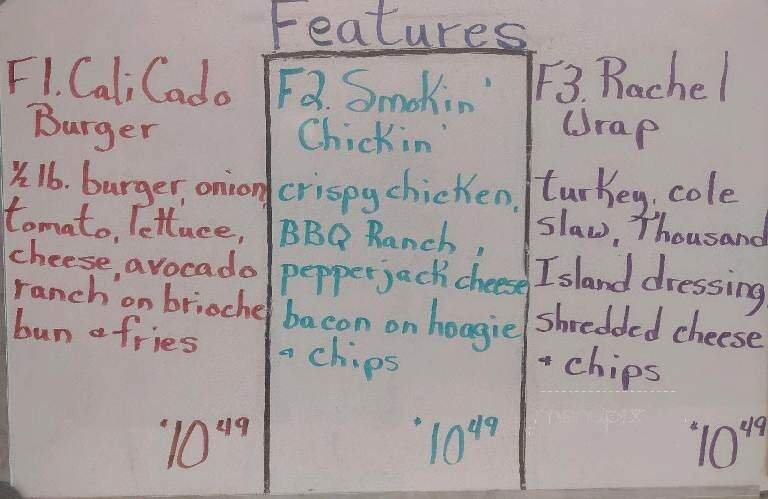 Features
F1. Cali Cado
Burger
½ lb. burger, onion,
tomato, lettuce,
cheese, avocado
ranch on brioche
bun & fries
$10 49
F2. Smokin'
Chickin'
crispy chicken,
BBQ Ranch,
pepperjack cheese
bacon on hoagie
& chips
$10 49
F3. Rachel
Wrap
turkey, cole
slaw, Thousand
Island dressing,
shredded cheese
& chips
$10 49